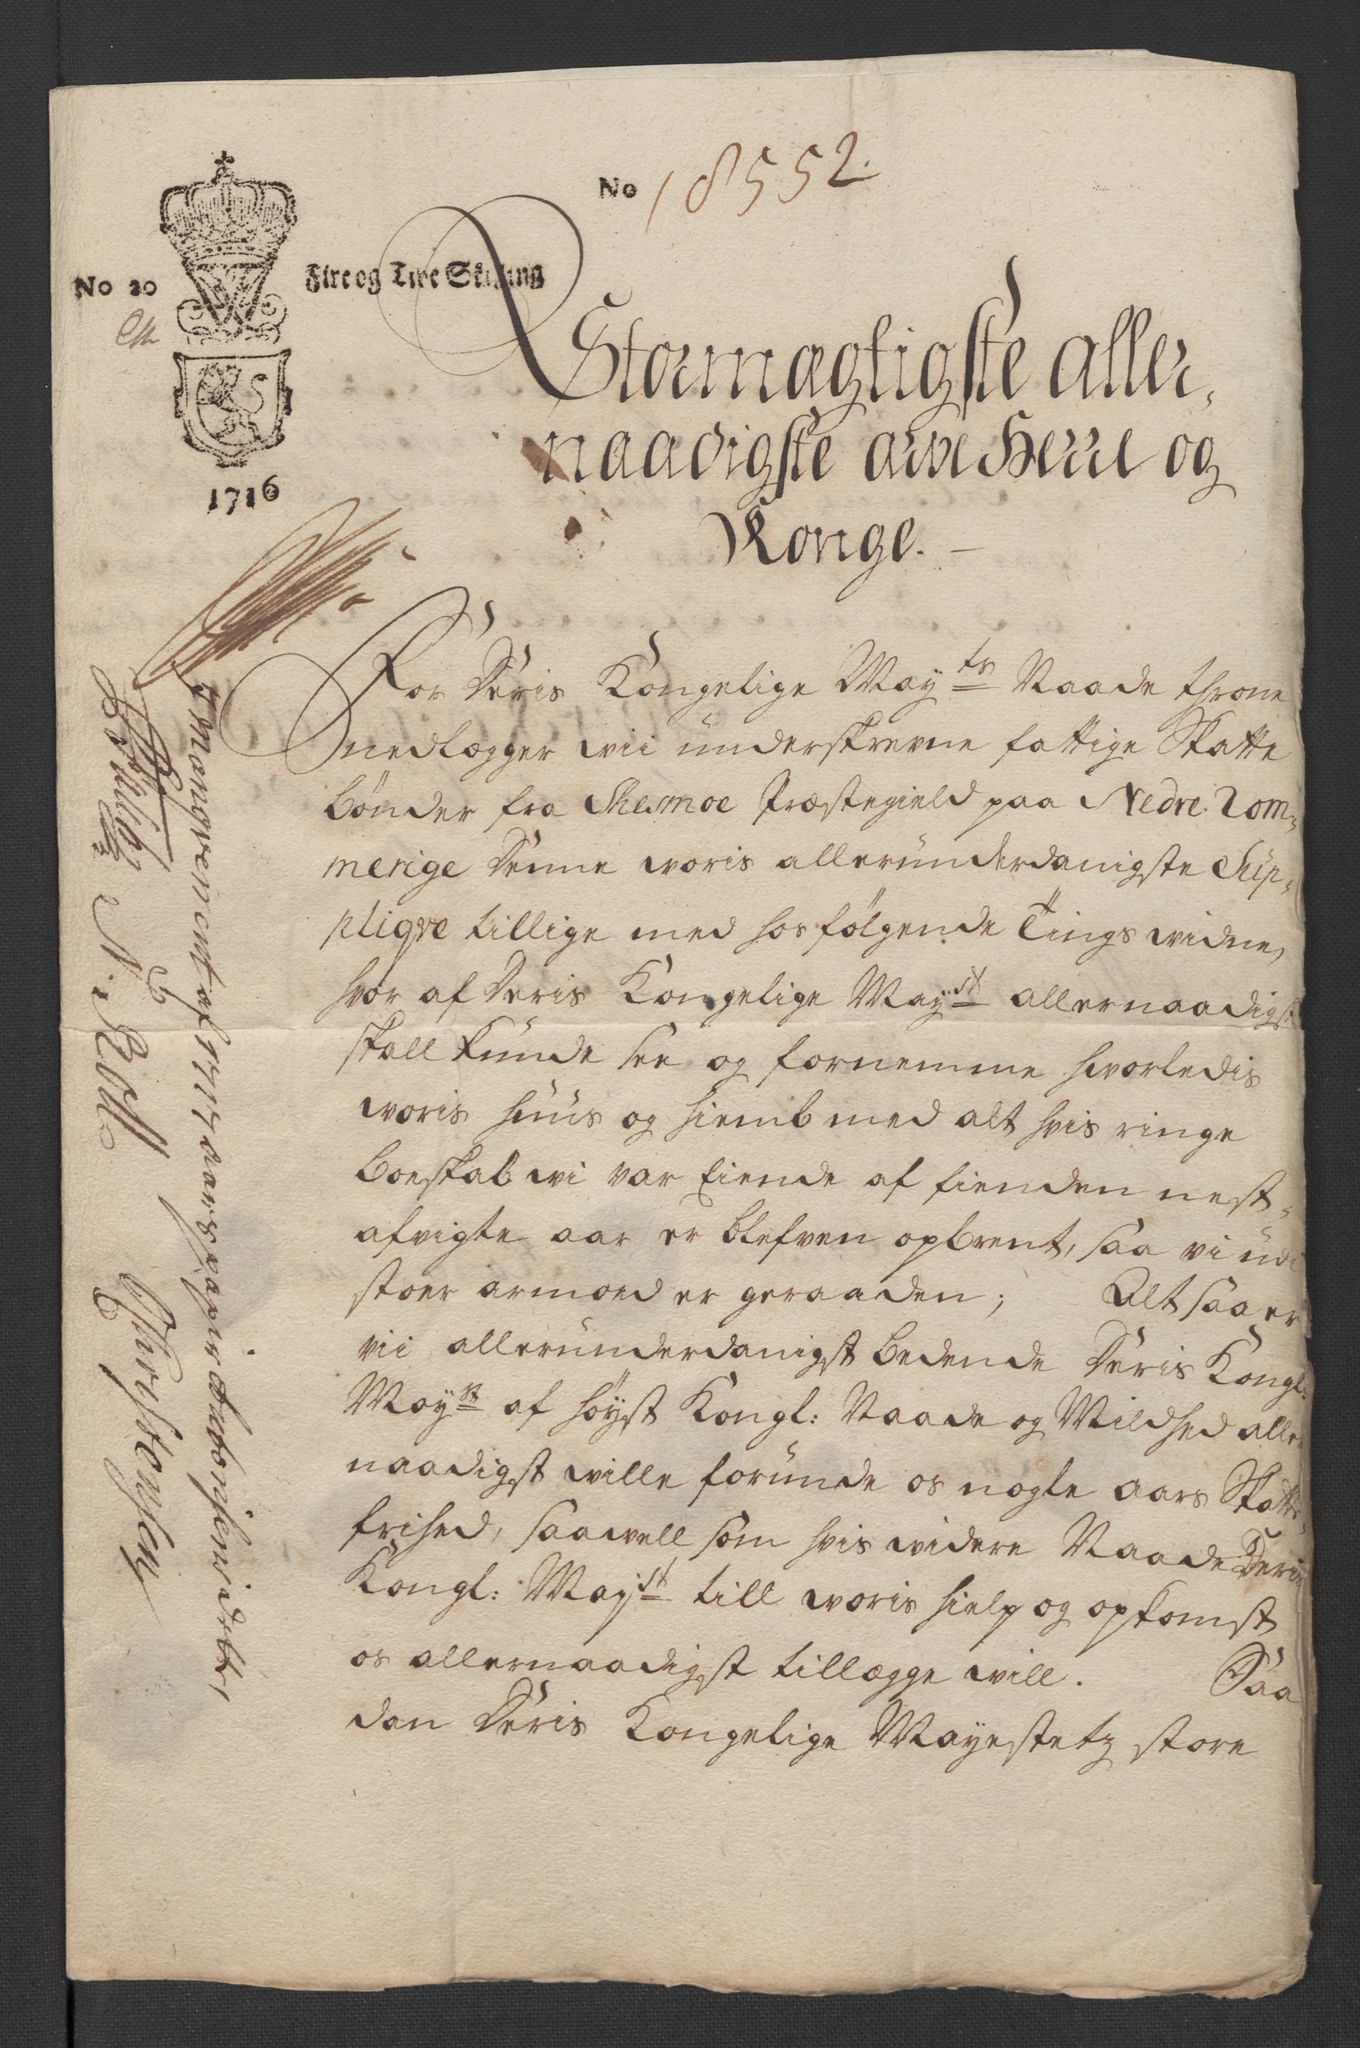 No 18552.
No 20 Fire og Tive Skilling
1716
Stormægtigste aller,
naadigste arve Herre og
Konge. –
For Deris Kongelige Mayts Naade throne
nedlægger wii underskrevne fattige Skatte
bønder fra Skesmoe Præstegield paa Nedre Rom,
merige denne woris allerunderdanigste Sup,
pliqve tillige med hos følgende Tings widne,
hvor af Deris Kongelige Mayst allernaadigst
skall kunde see og fornemme hvorledis
woris huus og hiemb med alt hvis ringe
boeskab wi var Eiende af fienden nest,
afvigte aar er blefven opbrent, saa vi udi
stoer armoed er geraaden; Alt saa er
vii allerunderdanigst bedende Deris Kongl:
Mayst af høyst Kongl: Naade og Mildhed aller
naadigst wille forunde os nogle aars Skatte,
frihed, saawell som hvis widere Naade Deris
Kongl: Mayst till woris hielp og opkomst
os allernaadigst tillægge will. Saa
dan Deris Kongelige Mayestetz store
I mangel ved af 1717 aars papir
N: Boll Christensen